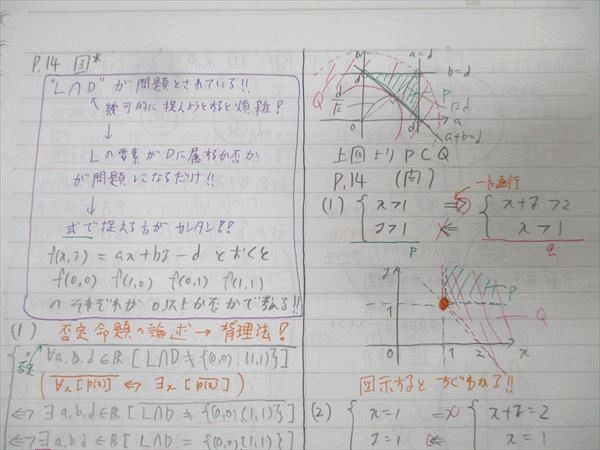 P.14 ③*
"L∩D" が問題とされている!!
↖幾何的に捉えようとすると煩雑!
↓
Lの要素がDに属するか否か
が問題になるだけ!!
↓
式で捉える方がカンタン!?
f(x,y) = ax + by - d とおくと
f(0,0) f(1,0) f(0,1) f(1,1)
のそれぞれが0以上か否かで教る!!
(1) 否定命題の論述 → 背理法!
否定 ∀a,b,d∈R [L∩D ≠ {(0,0),(1,1)}]
(∀x[p(x)] ⇔ ∃x[p(x)])
⇔ ∃a,b,d∈R [L∩D ≠ {(0,0),(1,1)}]
⇔ ∃a,b,d∈R [L∩D = {(0,0),(1,1)}]
b a=d
d b=d
Q P
d/√2 √2d
0 d a
a+b=d
上図より P⊂Q
P.14 (問)
一方通行
(1) { x>1 ⇒ { x+y>2
y>1 ⇐ x>1
p q
y
P
Q
1
1 2 x
図示するとすぐわかる!!
(2) { x=1 ⇒ { x+y=2
y=1 ⇐ x=1